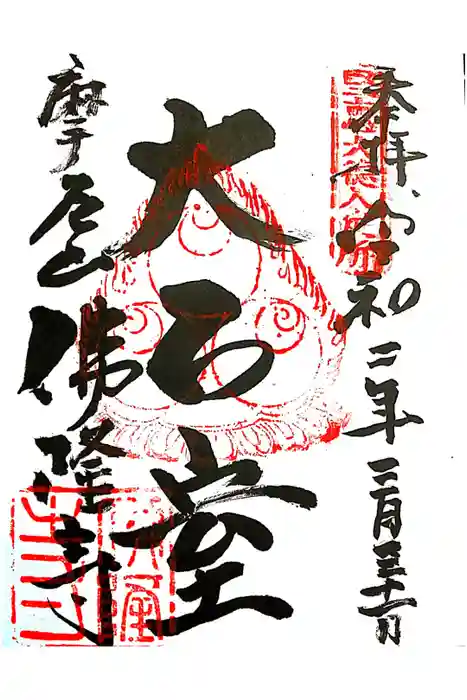 奉拝 令和二年三月三十一日
大石室
摩尼山 佛隆寺